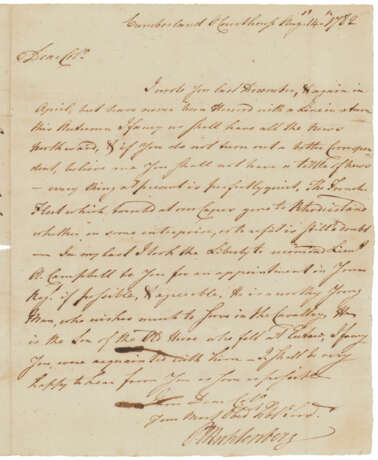 Cumberland Courthouse Aug. 14th 1782
Dear Col.
I wrote You last December, & again in
April, but have never been Honord with a Line in return
this Autumn I fancy we shall have all the News
Northward, & if You do not turn out a better Correspon
dent, believe me You shall not have a tittle of News
— every thing at present is perfectly quiet, The French
Fleet which was at our Capes gone to Rhodeisland
whether on some enterprise, or to refit is still a doubt
— In my last I took the Liberty to recommend Lieut.
R. Campbell to You for an appointment in Your
Reg. if possible, & agreeable, He is a worthy Young
Man, who wishes much to Serve in the Cavallry, He
is the Son of the Old Hero who fell at Eutaw, I fancy
You were acquainted with him — I shall be very
happy to hear from You as soon as possible
I am Dear Col.
Your Most Obed. Hble Serv.
P Muhlenberg